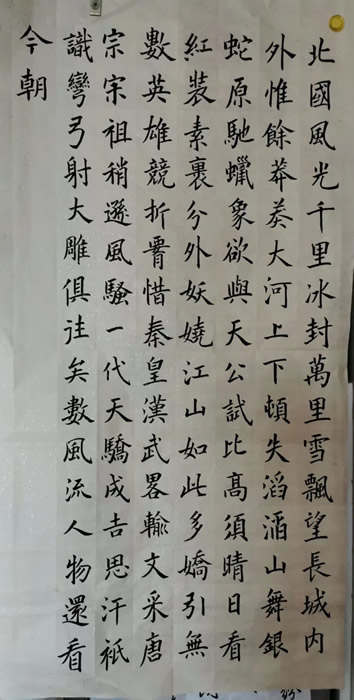 北國風光千里冰封萬里雪飄望長城内
外惟餘莽莽大河上下頓失滔滔山舞銀
蛇原馳蠟象欲與天公試比髙須晴日看
紅裝素裹分外妖嬈江山如此多嬌引無
數英雄競折腰惜秦皇漢武畧輸文采唐
宗宋祖稍遜風騷一代天驕成吉思汗祇
識彎弓射大雕俱往矣數風流人物還看
今朝